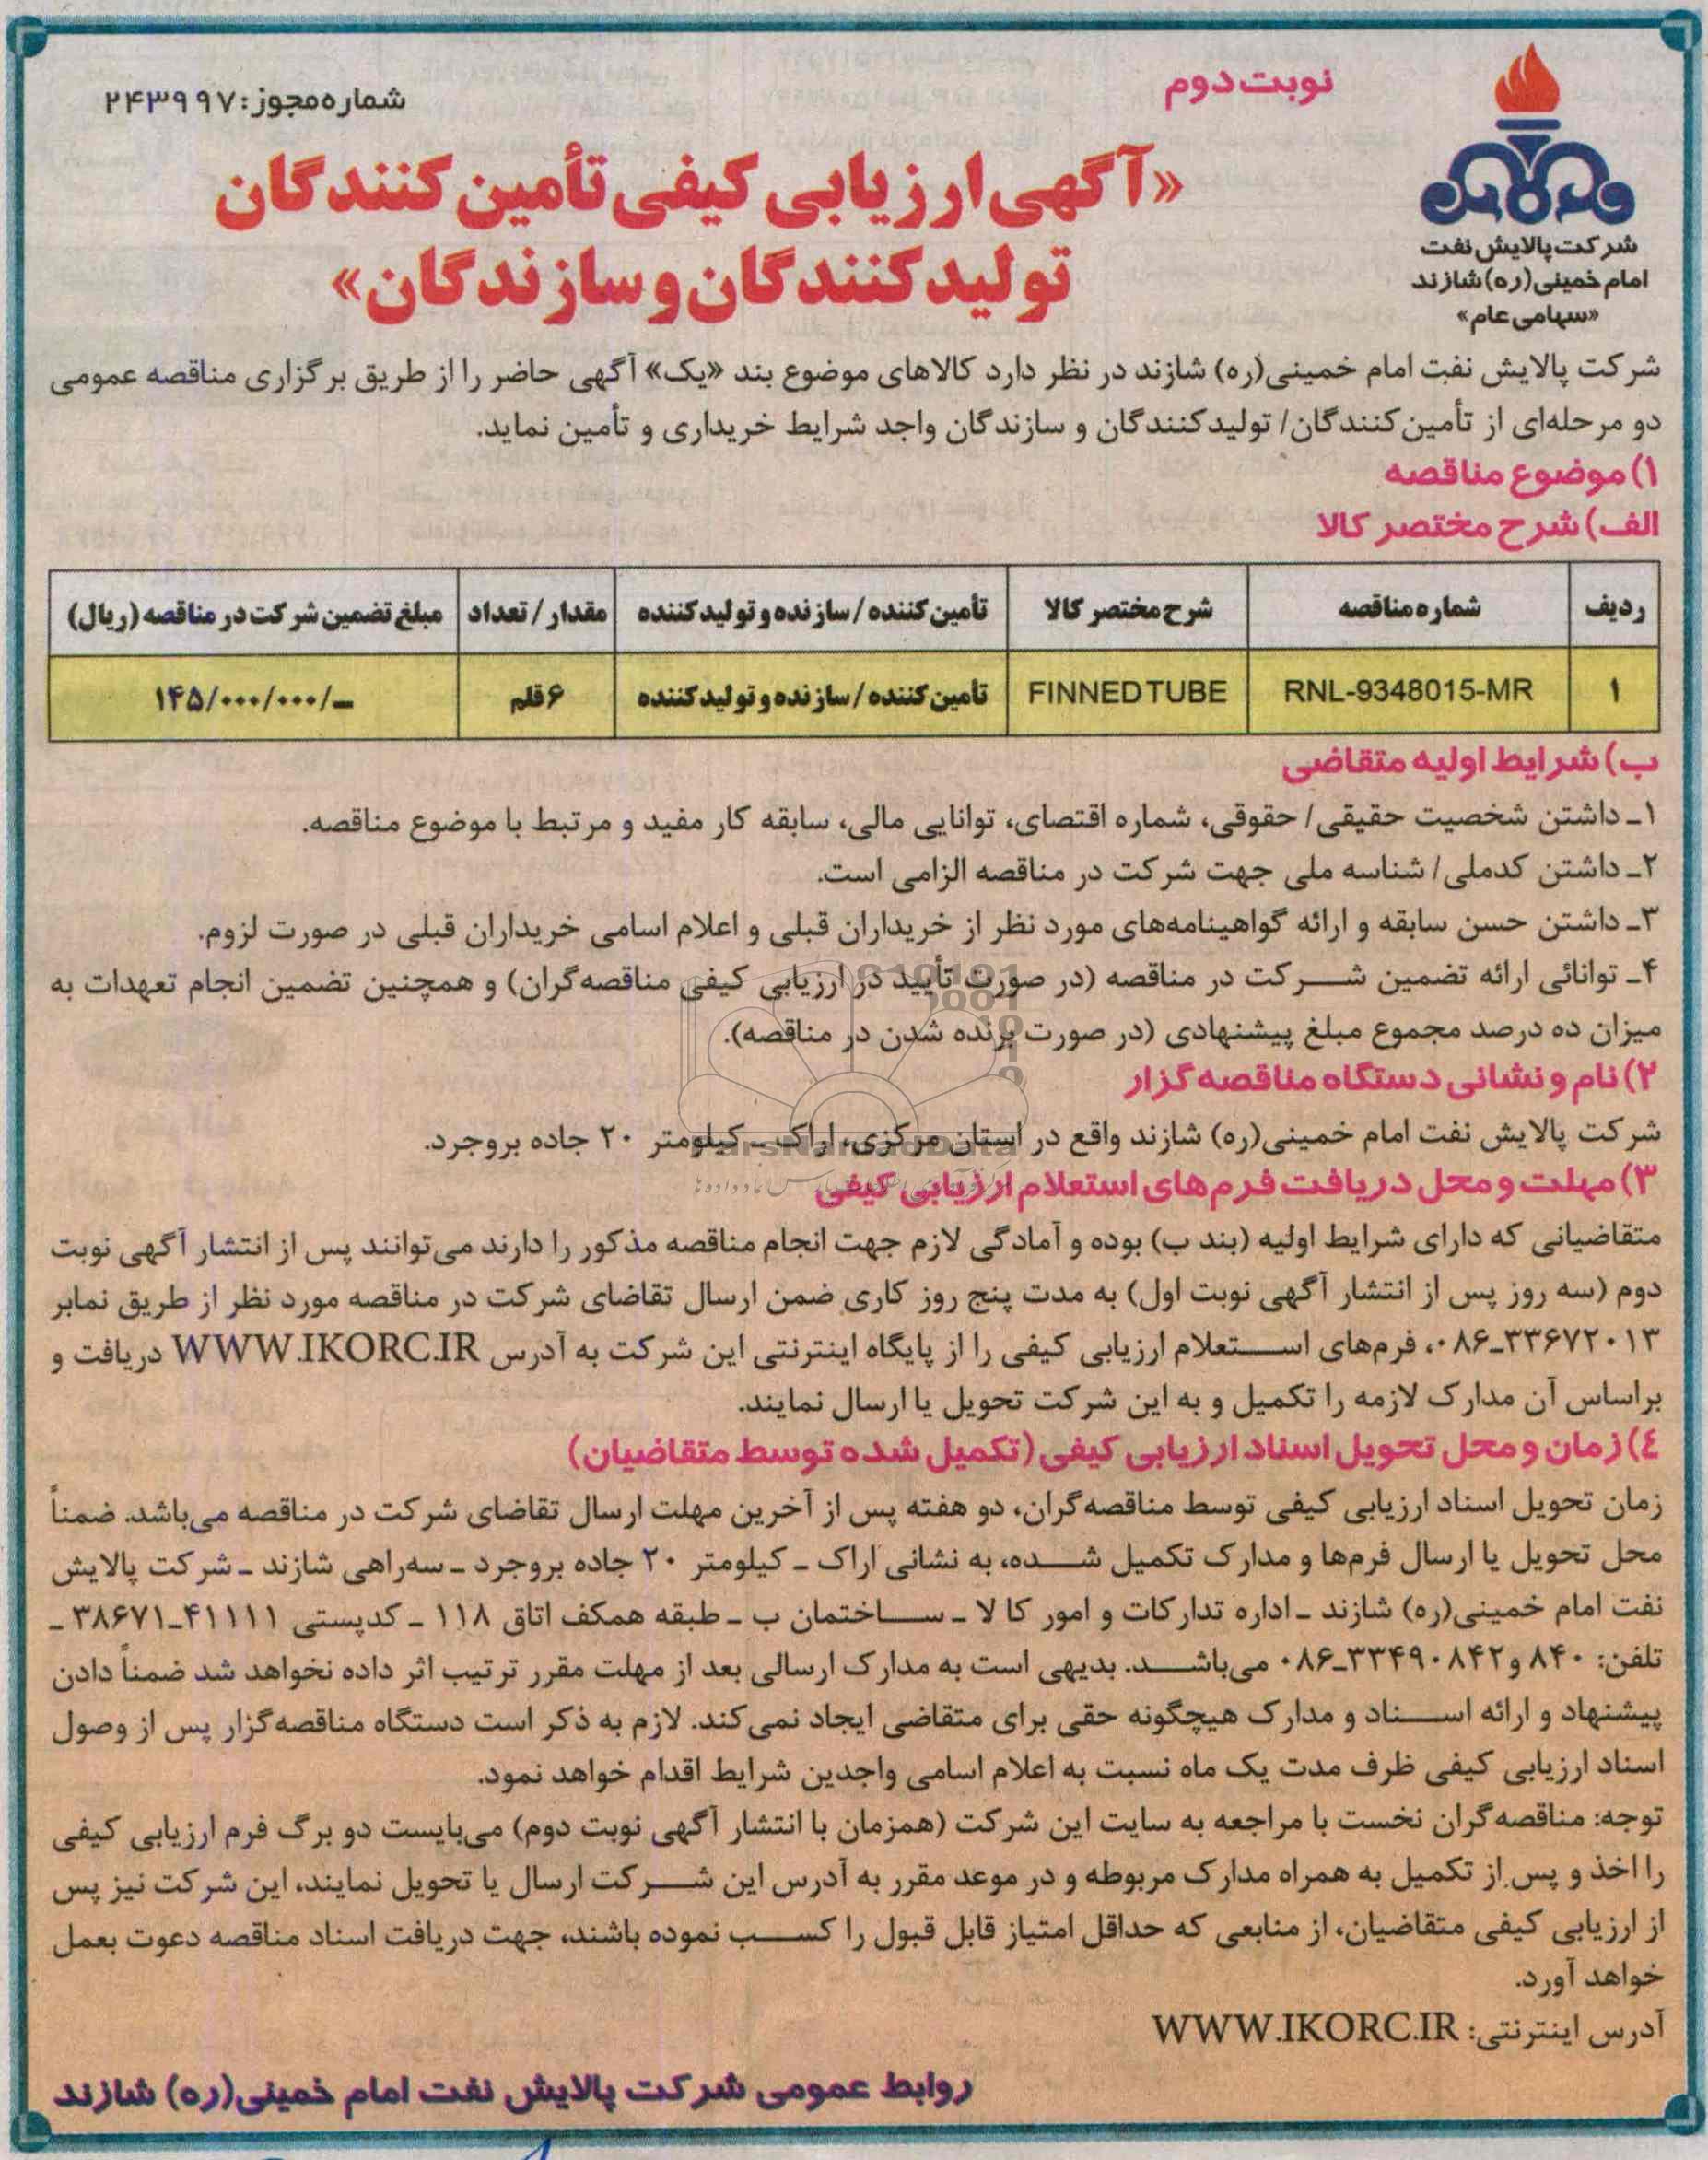 نوبت دوم
شماره مجوز: ۲۴۳۹۹۷
شرکت پالایش نفت
امام خمینی(ره) شازند
«سهامی عام»
«آگهی ارزیابی کیفی تأمین کنندگان
تولید کنندگان و سازندگان»
شرکت پالایش نفت امام خمینی(ره) شازند در نظر دارد کالاهای موضوع بند «یک» آگهی حاضر را از طریق برگزاری مناقصه عمومی
دو مرحله‌ای از تأمین کنندگان/ تولید کنندگان و سازندگان واجد شرایط خریداری و تأمین نماید.
۱) موضوع مناقصه
الف) شرح مختصر کالا
ردیف شماره مناقصه شرح مختصر کالا تأمین کننده / سازنده و تولید کننده مقدار / تعداد مبلغ تضمین شرکت در مناقصه (ریال)
۱ RNL-9348015-MR FINNED TUBE تأمین کننده / سازنده و تولید کننده ۶ قلم ۱۴۵/۰۰۰/۰۰۰/ـ
ب) شرایط اولیه متقاضی
۱ـ داشتن شخصیت حقیقی/ حقوقی، شماره اقتصای، توانایی مالی، سابقه کار مفید و مرتبط با موضوع مناقصه.
۲ـ داشتن کدملی/ شناسه ملی جهت شرکت در مناقصه الزامی است.
۳ـ داشتن حسن سابقه و ارائه گواهینامه‌های مورد نظر از خریداران قبلی و اعلام اسامی خریداران قبلی در صورت لزوم.
۴ـ توانائی ارائه تضمین شرکت در مناقصه (در صورت تأیید در ارزیابی کیفی مناقصه‌گران) و همچنین تضمین انجام تعهدات به
میزان ده درصد مجموع مبلغ پیشنهادی (در صورت برنده شدن در مناقصه).
۲) نام و نشانی دستگاه مناقصه گزار
شرکت پالایش نفت امام خمینی(ره) شازند واقع در استان مرکزی، اراک ـ کیلومتر ۲۰ جاده بروجرد.
۳) مهلت و محل دریافت فرم های استعلام ارزیابی کیفی
متقاضیانی که دارای شرایط اولیه (بند ب) بوده و آمادگی لازم جهت انجام مناقصه مذکور را دارند می‌توانند پس از انتشار آگهی نوبت
دوم (سه روز پس از انتشار آگهی نوبت اول) به مدت پنج روز کاری ضمن ارسال تقاضای شرکت در مناقصه مورد نظر از طریق نمابر
۰۸۶ـ۳۳۶۷۲۰۱۳، فرم‌های استعلام ارزیابی کیفی را از پایگاه اینترنتی این شرکت به آدرس WWW.IKORC.IR دریافت و
براساس آن مدارک لازمه را تکمیل و به این شرکت تحویل یا ارسال نمایند.
٤) زمان و محل تحویل اسناد ارزیابی کیفی (تکمیل شده توسط متقاضیان)
زمان تحویل اسناد ارزیابی کیفی توسط مناقصه‌گران، دو هفته پس از آخرین مهلت ارسال تقاضای شرکت در مناقصه می‌باشد. ضمناً
محل تحویل یا ارسال فرم‌ها و مدارک تکمیل شده، به نشانی اراک ـ کیلومتر ۲۰ جاده بروجرد ـ سه‌راهی شازند ـ شرکت پالایش
نفت امام خمینی(ره) شازند ـ اداره تدارکات و امور کالا ـ ساختمان ب ـ طبقه همکف اتاق ۱۱۸ ـ کدپستی ۴۱۱۱۱ـ۳۸۶۷۱ ـ
تلفن: ۸۴۰ و۳۳۴۹۰۸۴۲ـ۰۸۶ می‌باشد. بدیهی است به مدارک ارسالی بعد از مهلت مقرر ترتیب اثر داده نخواهد شد ضمناً دادن
پیشنهاد و ارائه اسناد و مدارک هیچگونه حقی برای متقاضی ایجاد نمی‌کند. لازم به ذکر است دستگاه مناقصه‌گزار پس از وصول
اسناد ارزیابی کیفی ظرف مدت یک ماه نسبت به اعلام اسامی واجدین شرایط اقدام خواهد نمود.
توجه: مناقصه‌گران نخست با مراجعه به سایت این شرکت (همزمان با انتشار آگهی نوبت دوم) می‌بایست دو برگ فرم ارزیابی کیفی
را اخذ و پس از تکمیل به همراه مدارک مربوطه و در موعد مقرر به آدرس این شرکت ارسال یا تحویل نمایند، این شرکت نیز پس
از ارزیابی کیفی متقاضیان، از منابعی که حداقل امتیاز قابل قبول را کسب نموده باشند، جهت دریافت اسناد مناقصه دعوت بعمل
خواهد آورد.
آدرس اینترنتی: WWW.IKORC.IR
روابط عمومی شرکت پالایش نفت امام خمینی(ره) شازند